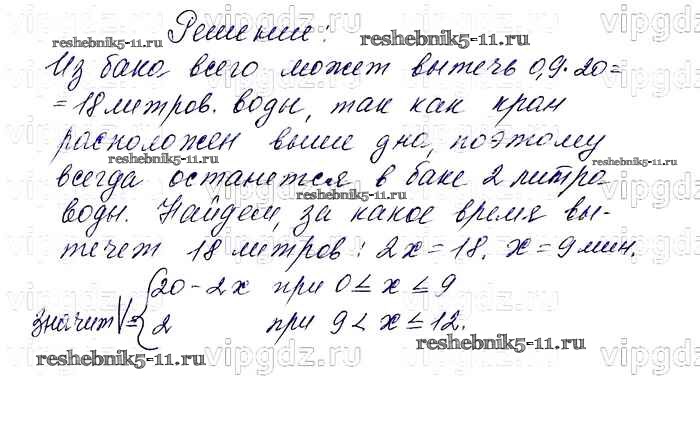 Решение:
Из бака всего может вытечь 0,9·20=
=18 литров. воды, так как кран
расположен выше дна, поэтому
всегда останется в баке 2 литра
воды. Найдем, за какое время вы-
течет 18 литров: 2x=18. x=9 мин.
20-2x при 0≤x≤9
значит V={
2 при 9<x≤12.
vipgdz.ru
reshebnik5-11.ru
reshebnik5-11.ru
vipgdz.ru
reshebnik5-11.ru
reshebnik5-11.ru
reshebnik5-11.ru
vipgdz.ru
vipgdz.ru
vipgdz.ru
reshebnik5-11.ru
vipgdz.ru
reshebnik5-11.ru
vipgdz.ru